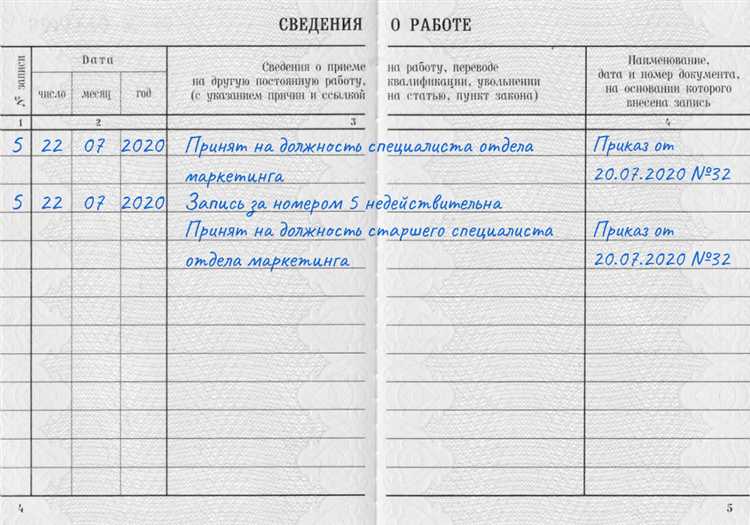 СВЕДЕНИЯ О РАБОТЕ
№ записи
Дата
число месяц год
Сведения о приеме на работу, переводе
на другую постоянную работу, квалификации, увольнении
(с указанием причин и ссылкой на статью, пункт закона)
Наименование,
дата и номер документа,
на основании которого
внесена запись
1 2 3 4
5 22 07 2020 Принят на должность специалиста отдела Приказ от
маркетинга 20.07.2020 №32
5 22 07 2020 Запись за номером 5 недействительна
Принят на должность старшего специалиста Приказ от
отдела маркетинга 20.07.2020 №32
4 5